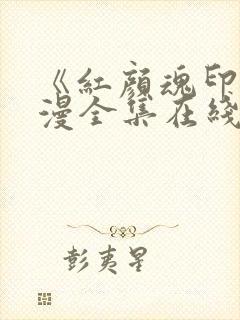 《紅顏魂印
漫全集在綫
彭夷星